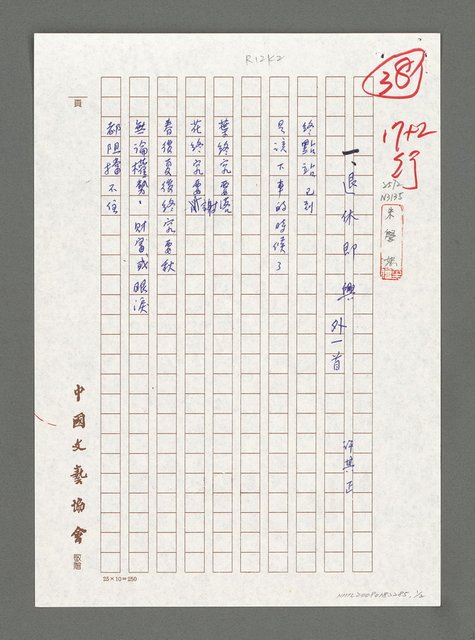 R12K2
38
17+2
行
25/2
N3135
一、退休即興 外一首
許其正
終點站已到
是該下車的時候了
葉終究要落
花終究要凋謝
春後夏後終究要秋
無論權勢、財富或眼淚
都阻擋不住
頁
中國文藝協會
敬贈
25×10=250